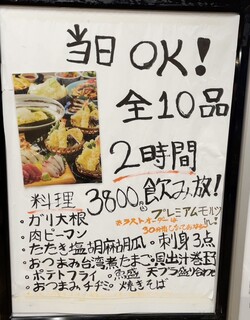 当日OK!
全10品
2時間
3800円飲み放!
料理
プレミアムモルツ
・ガリ大根
※ラストオーダーは
30分前
・肉ピーマン
・たたき塩胡麻胡瓜
・刺身3点
・おつまみ台湾煮たまご
・ポテトフライ
天プラ盛り合わせ
・おつまみチヂミ
・焼きそば